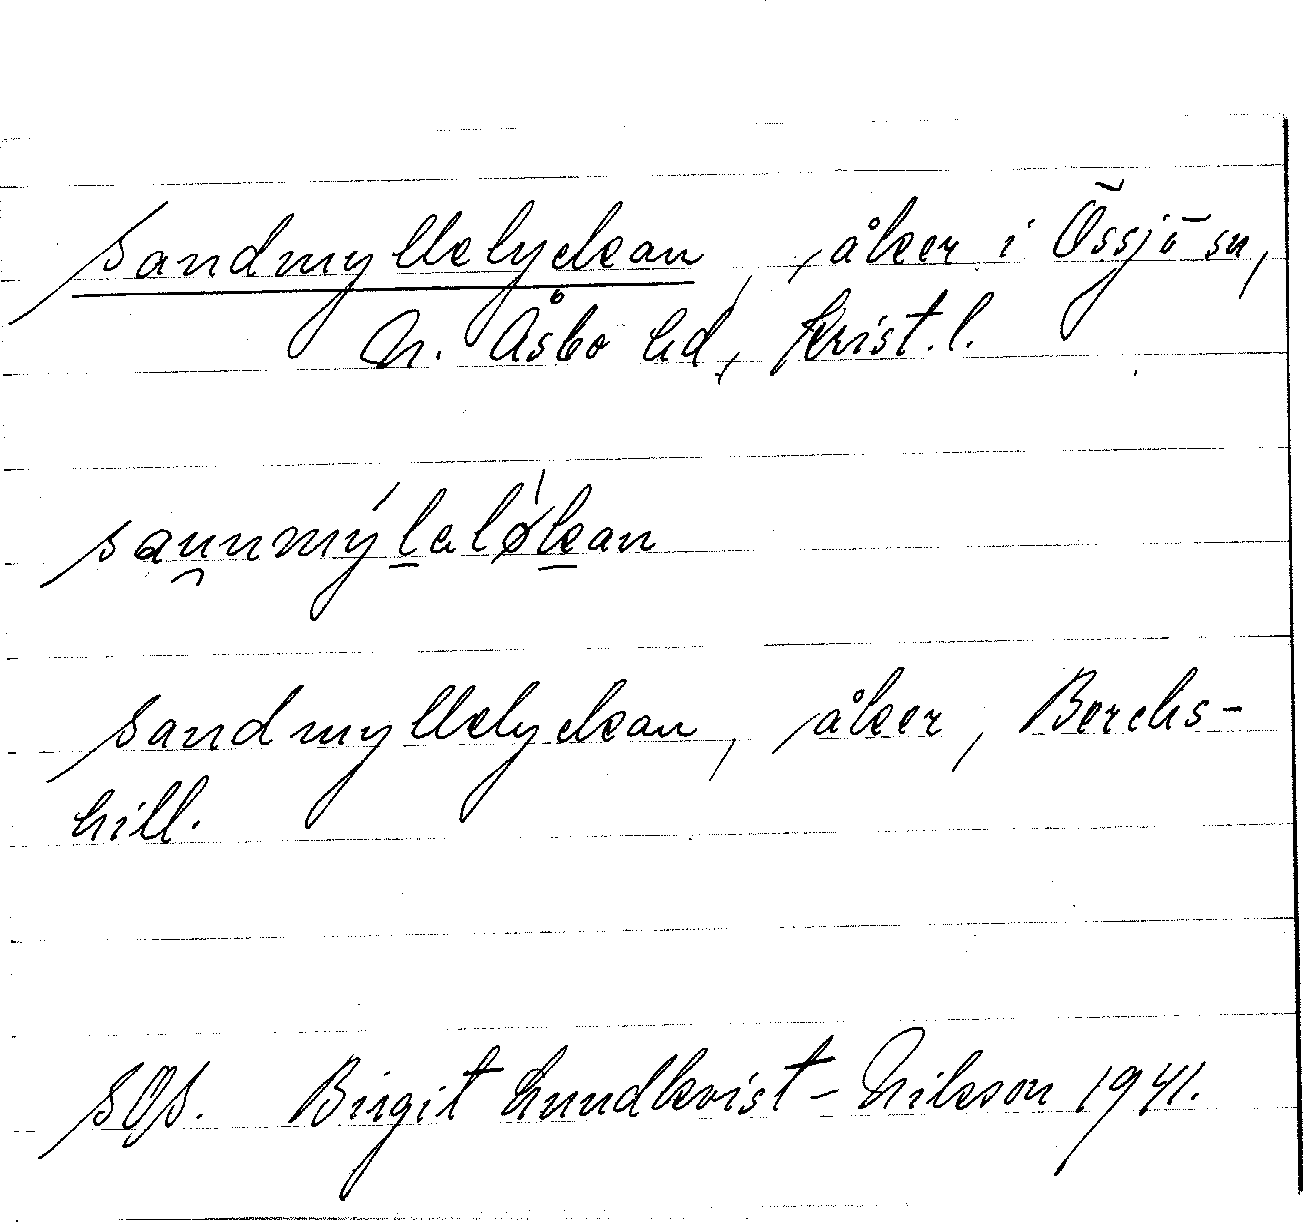 Sandmyllelyckan, åker i Össjö sn,
N. Åsbo hd, Krist. l.
saunmýlalø̍kan
Sandmyllelyckan, åker, Berchs-
hill.
SOS. Birgit Lundkvist-Nilsson 1941.